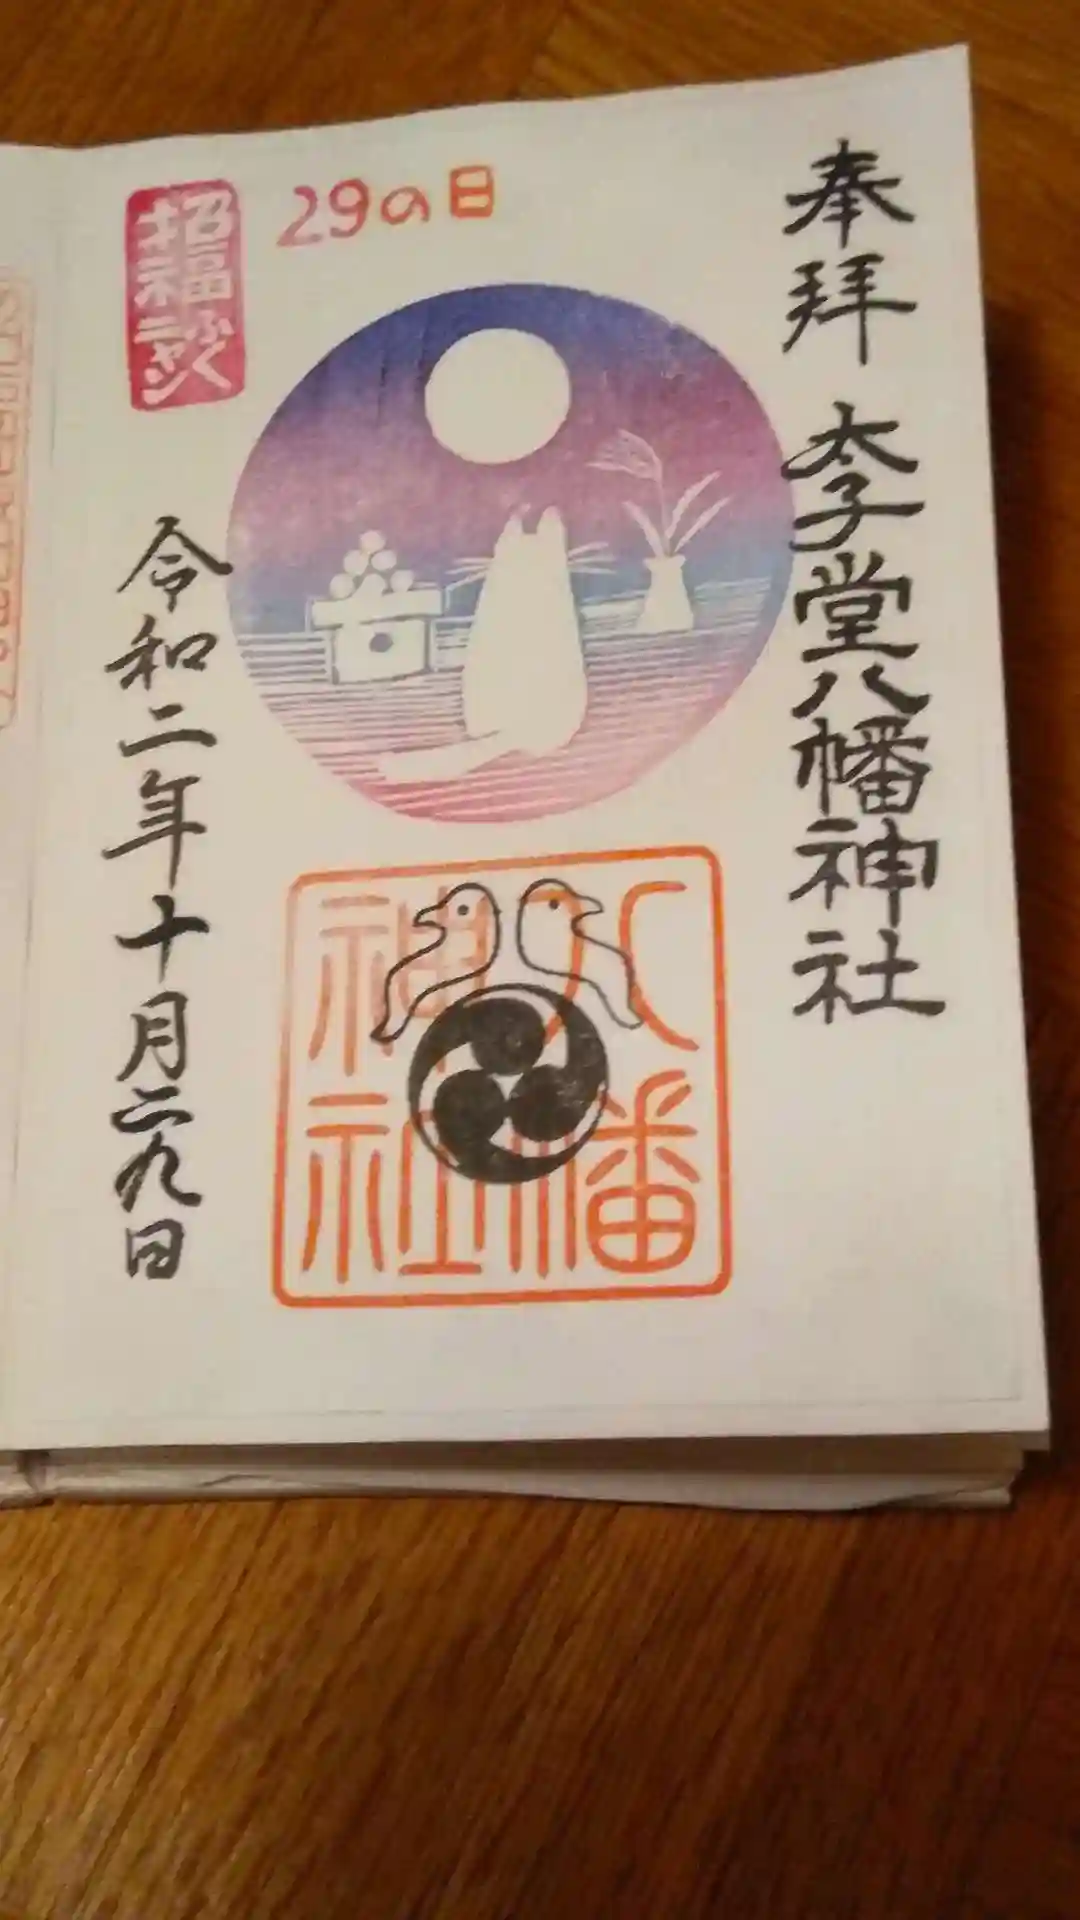 奉拝
太子堂八幡神社
29の日
招福ふくニャン
八幡
神社
令和二年十月二九日